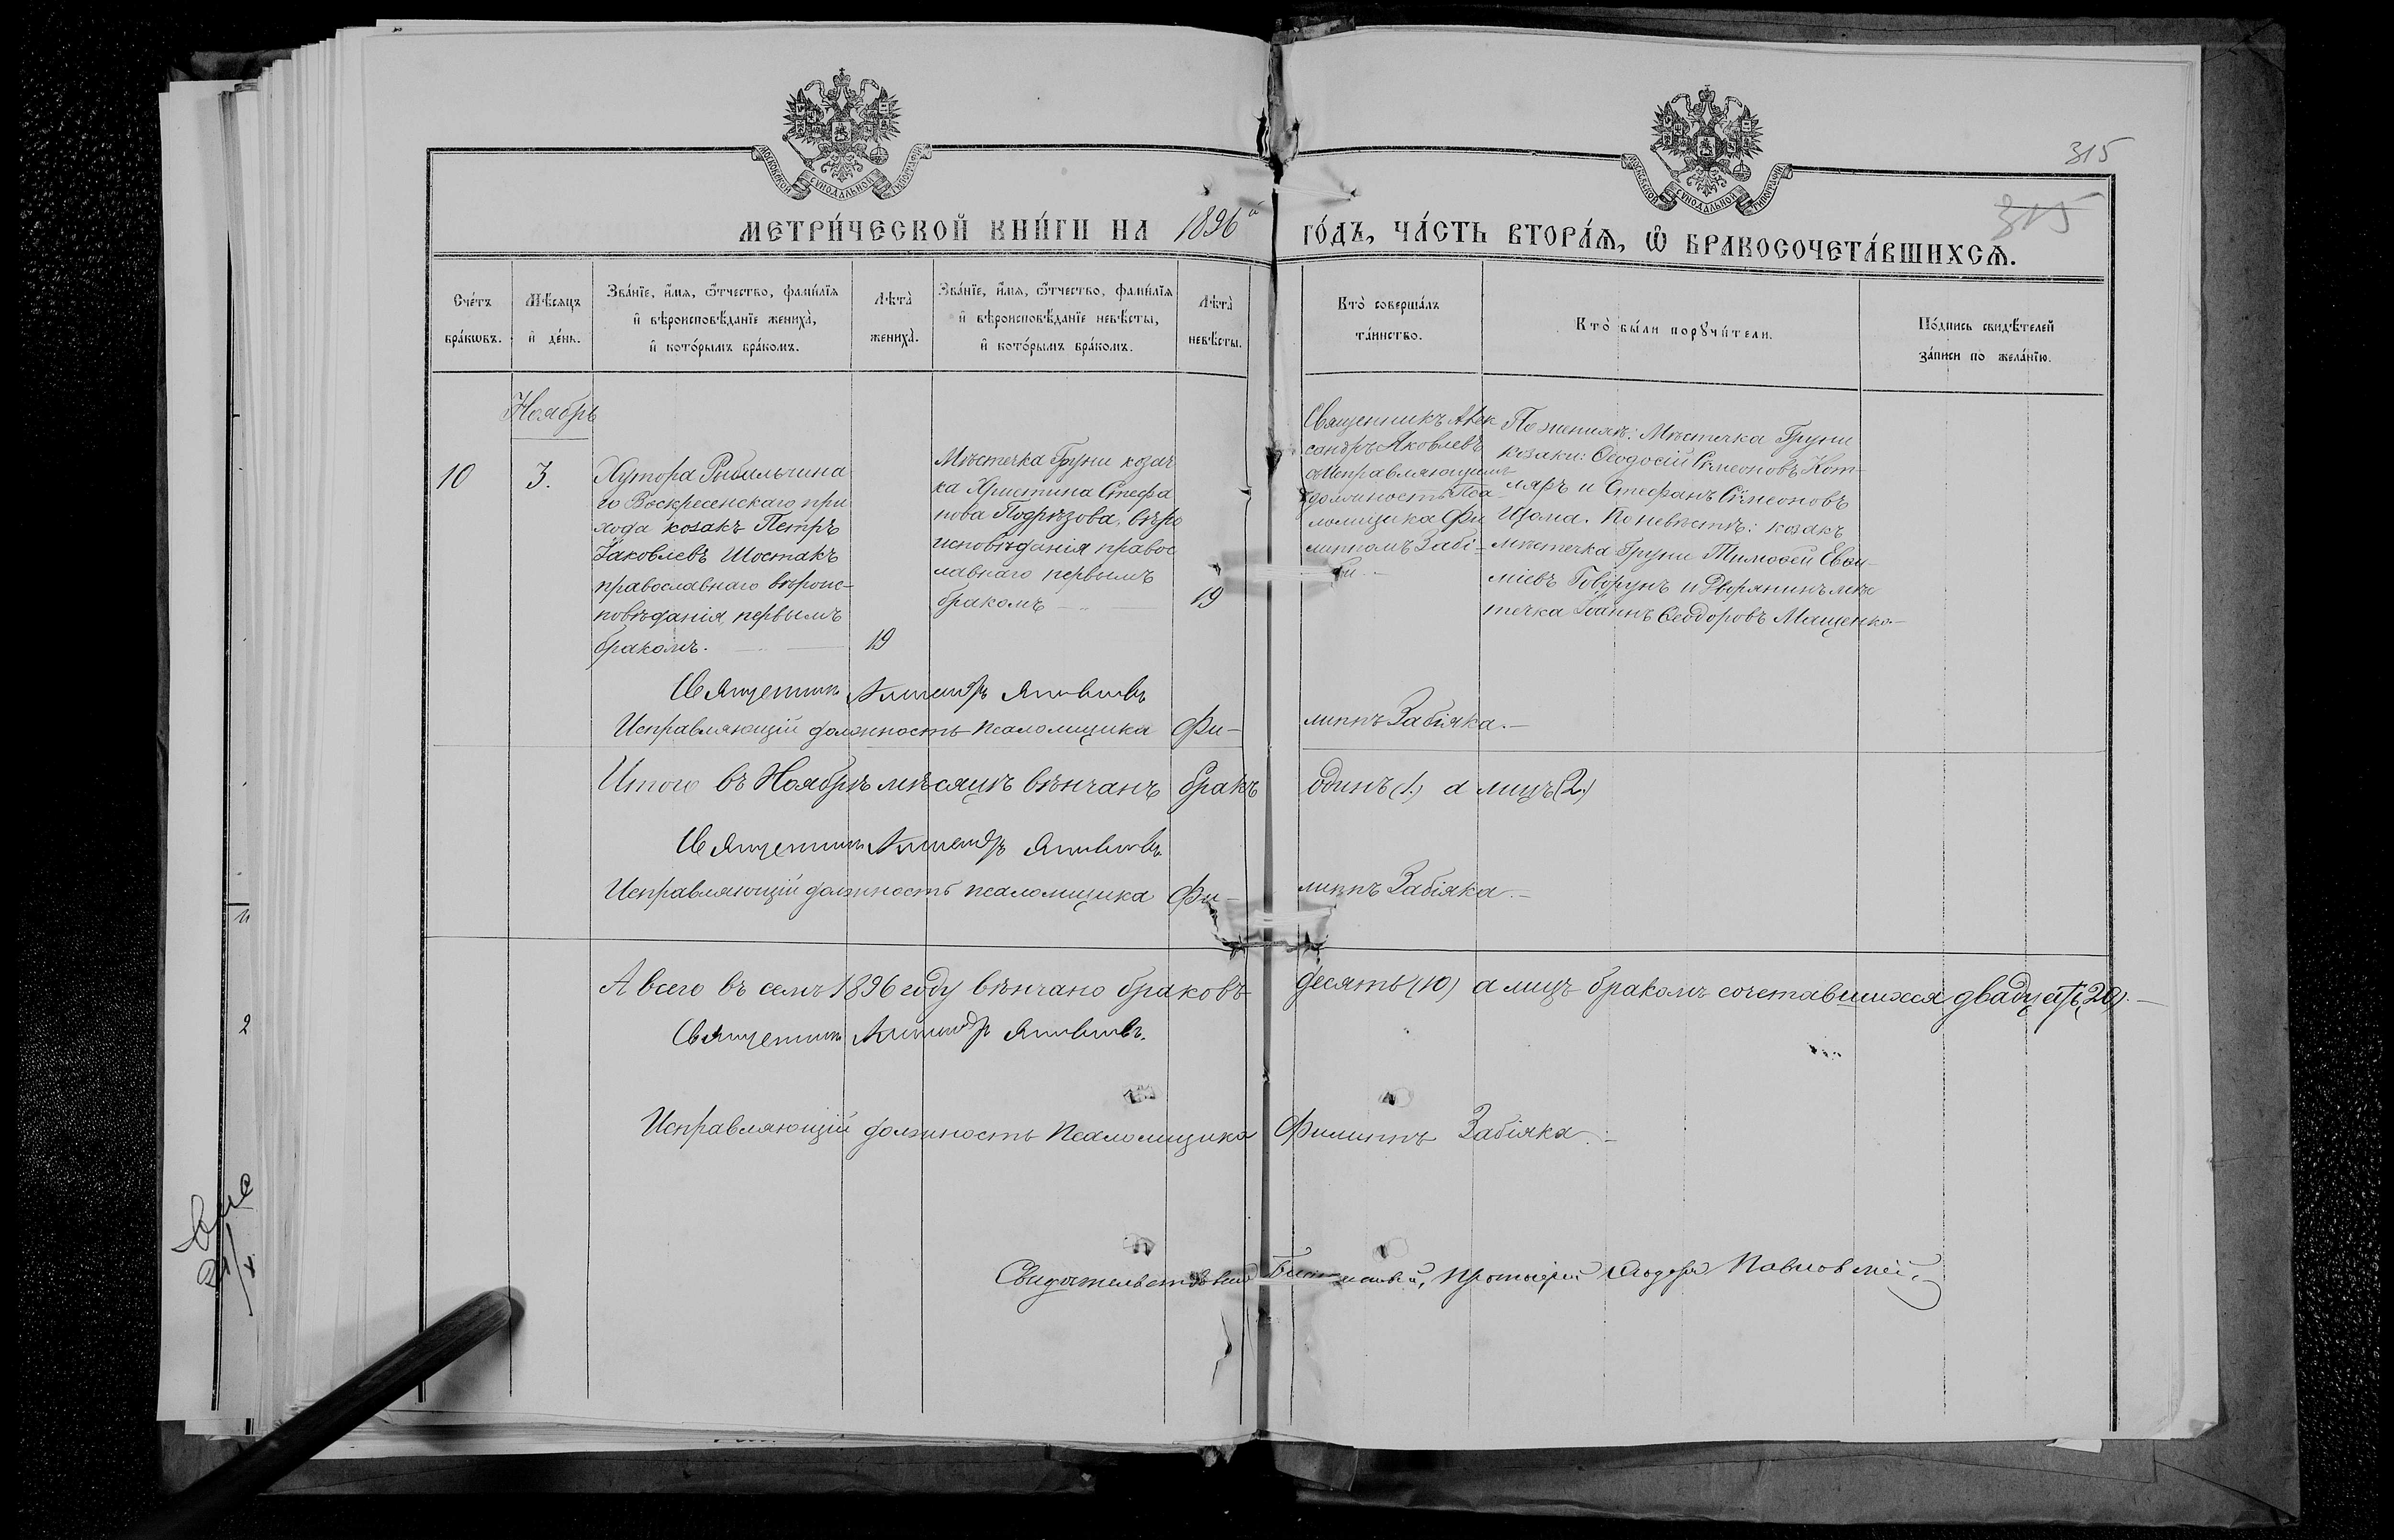 315
315
МОСКОВСКОЙ СѴНОДАЛЬНОЙ ТИПОГРАФІИ
МОСКОВСКОЙ СѴНОДАЛЬНОЙ ТИПОГРАФІИ
МЕТРИ́ЧЕСКОЙ КНИ́ГИ НА 1896й ГО́ДЪ, ЧА́СТЬ ВТОРА́Ѧ, Ѽ БРАКОСОЧЕТА́ВШИХСѦ.
Сче́тъ
бра́кѡвъ.
Мѣ́сѧцъ
и҆ де́нь.
Зва́нїе, и҆́мѧ, ѻ҆́тчество, фами́лїѧ
и҆ вѣроисповѣ́данїе жениха̀,
и҆ кото́рымъ бра́комъ.
Лѣта̀
жениха̀.
Зва́нїе, и҆́мѧ, ѻ҆́тчество, фами́лїѧ
и҆ вѣроисповѣ́данїе невѣ́сты,
и҆ кото́рымъ бра́комъ.
Лѣта̀
невѣ́сты.
Кто̀ соверша́лъ
та́инство.
Кто̀ бы́ли порꙋчи́тели.
По́дпись свидѣ́телей
за́писи по жела́нїю.
Ноябрь
10
3.
Хутора Рыбальчина
го Воскресенскаго при
хода козакъ Петръ
Іаковлевъ Шостакъ
православнаго вѣроис-
повѣданія, первымъ
бракомъ.
19
Мѣстечка Груни козач
ка Христина Стефа
нова Подрѣзова, вѣро
исповѣданія правос
лавнаго первымъ
бракомъ
19
Священникъ Алек
сандръ Яковлевъ
съ Исправляющимъ
должность Пса-
ломщика Фи
липпомъ Забі-
По женихѣ: Мѣстечка Груни
козаки: Ѳеодосій Сѵмеоновъ Кот-
ляръ и Стефанъ Сѵмеоновъ
Щома. По невѣстѣ: козакъ
мѣстечка Груни Тимоѳей Евѳи-
міевъ Говорунъ и Дворянинъ мѣс
течка Іоаннъ Ѳеодоровъ Мащенко.
Священникъ Александръ Яковлевъ
Исправляющій должность псаломщика Фи-
липпъ Забіяка.
Итого въ Ноябрѣ мѣсяцѣ вѣнчанъ бракъ одинъ (1.) а лицъ (2.)
Священникъ Александръ Яковлевъ
Исправляющій должность псаломщика Фи-
липпъ Забіяка.
А всего въ семъ 1896 году вѣнчано браковъ десять (10) а лицъ бракомъ сочетавшихся двадцать (20).
Священникъ Александръ Яковлевъ.
Исправляющій должность Псаломщика Филиппъ Забіяка.
Свидѣтельствовалъ Протоіерей Ѳеодоръ Павловскій.
2